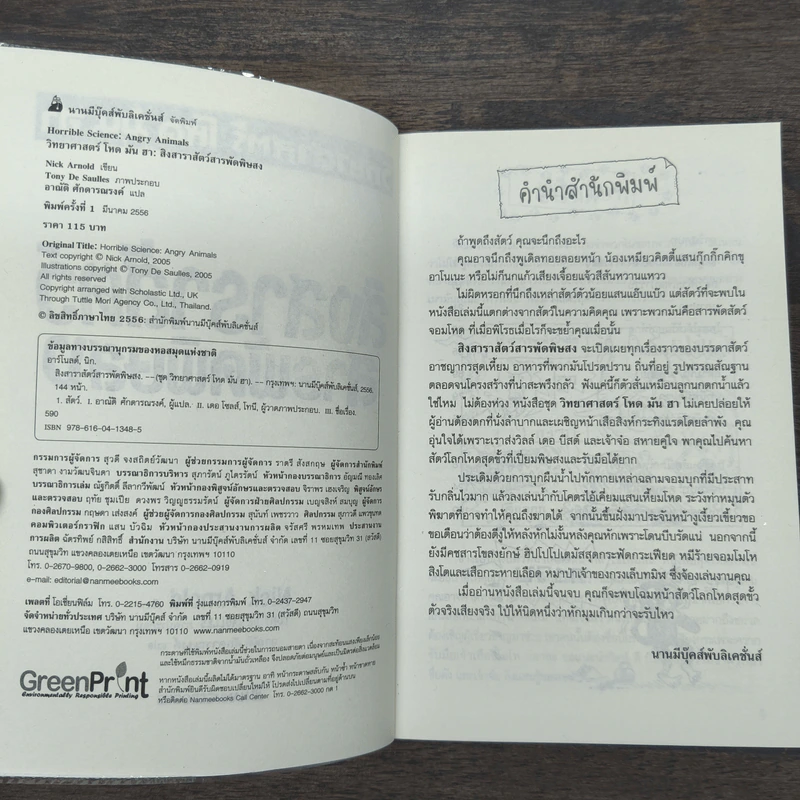 นานมีบุ๊คส์พับลิเคชั่นส์ จัดพิมพ์
Horrible Science: Angry Animals
วิทยาศาสตร์ โหด มัน ฮา: สิงสาราสัตว์สารพัดพิษสง
Nick Arnold เขียน
Tony De Saulles ภาพประกอบ
อาณัติ ศักดารณรงค์ แปล
พิมพ์ครั้งที่ 1 มีนาคม 2556
ราคา 115 บาท
Original Title: Horrible Science: Angry Animals
Text copyright © Nick Arnold, 2005
Illustrations copyright © Tony De Saulles, 2005
All rights reserved
Copyright arranged with Scholastic Ltd., UK
Through Tuttle Mori Agency Co., Ltd., Thailand.
© ลิขสิทธิ์ภาษาไทย 2556: สำนักพิมพ์นานมีบุ๊คส์พับลิเคชั่นส์
ข้อมูลทางบรรณานุกรมของหอสมุดแห่งชาติ
อาร์โนลด์, นิก.
สิงสาราสัตว์สารพัดพิษสง. --(ชุด วิทยาศาสตร์ โหด มัน ฮา). -- กรุงเทพฯ: นานมีบุ๊คส์พับลิเคชั่นส์, 2556.
144 หน้า.
1. สัตว์. I. อาณัติ ศักดารณรงค์, ผู้แปล. II. เดอ โซลส์, โทนี, ผู้วาดภาพประกอบ. III. ชื่อเรื่อง.
590
ISBN 978-616-04-1348-5
กรรมการผู้จัดการ สุวดี จงสถิตย์วัฒนา ผู้ช่วยกรรมการผู้จัดการ ราตรี สังสกฤษ ผู้จัดการสำนักพิมพ์
สุชาดา งามวัฒนจินดา บรรณาธิการบริหาร สุภารัตน์ ภูไตรรัตน์ หัวหน้ากองบรรณาธิการ อัญมณี ทองเลิศ
บรรณาธิการเล่ม ณัฐกิตติ์ ลีลากวีพัฒน์ หัวหน้ากองพิสูจน์อักษรและตรวจสอบ จิราพร เฮงเจริญ พิสูจน์อักษร
และตรวจสอบ ฤทัย ชุมเปีย ดวงพร วิญญูธรรมรัตน์ ผู้จัดการฝ่ายศิลปกรรม เบญจสิงห์ สมบุญ ผู้จัดการ
กองศิลปกรรม กฤษดา เส่งสงค์ ผู้ช่วยผู้จัดการกองศิลปกรรม สุนันท์ เพชรวาว ศิลปกรรม สุภาวดี แพวขุนทด
คอมพิวเตอร์กราฟิก แสน บัวฉิม หัวหน้ากองประสานงานการผลิต จรัสศรี พรหมเทพ ประสานงาน
การผลิต ฉัตรทิพย์ กสิสิทธิ์ สำนักงาน บริษัท นานมีบุ๊คส์พับลิเคชั่นส์ จำกัด เลขที่ 11 ซอยสุขุมวิท 31 (สวัสดี)
ถนนสุขุมวิท แขวงคลองเตยเหนือ เขตวัฒนา กรุงเทพฯ 10110
โทร. 0-2670-9800, 0-2662-3000 โทรสาร 0-2662-0919
e-mail: editorial@nanmeebooks.com
เพลตที่ โอเชี่ยนฟิล์ม โทร. 0-2215-4760 พิมพ์ที่ รุ่งแสงการพิมพ์ โทร. 0-2437-2947
จัดจำหน่ายทั่วประเทศ บริษัท นานมีบุ๊คส์ จำกัด เลขที่ 11 ซอยสุขุมวิท 31 (สวัสดี) ถนนสุขุมวิท
แขวงคลองเตยเหนือ เขตวัฒนา กรุงเทพฯ 10110 www.nanmeebooks.com
GreenPrint
Environmentally Responsible Printing
กระดาษที่ใช้พิมพ์หนังสือเล่มนี้ช่วยในการถนอมสายตา เนื่องจากสะท้อนแสงเพียงเล็กน้อย
และใช้หมึกธรรมชาติจากน้ำมันถั่วเหลือง จึงปลอดภัยต่อมนุษย์และเป็นมิตรต่อสิ่งแวดล้อม
หากหนังสือเล่มนี้ผลิตไม่ได้มาตรฐาน อาทิ หน้ากระดาษสลับกัน หน้าซ้ำ หน้าขาดหาย
สำนักพิมพ์ยินดีรับผิดชอบเปลี่ยนใหม่ให้ โปรดส่งไปเปลี่ยนตามที่อยู่ด้านบน
หรือติดต่อ Nanmeebooks Call Center โทร. 0-2662-3000 กด 1
คำนำสำนักพิมพ์
ถ้าพูดถึงสัตว์ คุณจะนึกถึงอะไร
คุณอาจนึกถึงพูเดิลทอยลอยหน้า น้องเหมียวคิตตี้แสนกุ๊กกิ๊กคิกขุ
อาโนเนะ หรือไม่ก็นกแก้วเสียงเจื้อยแจ้วสีสันหวานแหวว
ไม่ผิดหรอกที่นึกถึงเหล่าสัตว์ตัวน้อยแสนแอ๊บแบ๊ว แต่สัตว์ที่จะพบใน
หนังสือเล่มนี้แตกต่างจากสัตว์ในความคิดคุณ เพราะพวกมันคือสารพัดสัตว์
จอมโหด ที่เมื่อพิโรธเมื่อไรก็จะขย้ำคุณเมื่อนั้น
สิงสาราสัตว์สารพัดพิษสง จะเปิดเผยทุกเรื่องราวของบรรดาสัตว์
อาชญากรสุดเหี้ยม อาหารที่พวกมันโปรดปราน ถิ่นที่อยู่ รูปพรรณสัณฐาน
ตลอดจนโครงสร้างที่น่าสะพรึงกลัว ฟังแค่นี้ก็ตัวสั่นเหมือนลูกนกตกน้ำแล้ว
ใช่ไหม ไม่ต้องห่วง หนังสือชุด วิทยาศาสตร์ โหด มัน ฮา ไม่เคยปล่อยให้
ผู้อ่านต้องตกที่นั่งลำบากและเผชิญหน้าเสือสิงห์กระทิงแรดโดยลำพัง คุณ
อุ่นใจได้เพราะเราส่งวิลล์ เดอ บีสต์ และเจ้าจ๋อ สหายคู่ใจ พาคุณไปค้นหา
สัตว์โลกโหดสุดขั้วที่เปี่ยมพิษสงและรับมือได้ยาก
ประเดิมด้วยการบุกผืนน้ำไปทักทายเหล่าฉลามจอมบุกที่มีประสาท
รับกลิ่นไวมาก แล้วลงเล่นน้ำกับโคตรไอ้เคี่ยมแสนเหี้ยมโหด ระวังท่าหมุนตัว
พิฆาตที่อาจทำให้คุณถึงฆาตได้ จากนั้นขึ้นฝั่งมาประจันหน้างูเงี้ยวเขี้ยวขอ
ขอเตือนว่าต้องดึงงูให้หลังหักไม่งั้นหลังคุณหักเพราะโดนบีบรัดแน่ นอกจากนี้
ยังมีคชสารโขลงยักษ์ ฮิปโปโปเตมัสสุดกระฟัดกระเฟียด หมีร้ายจอมโมโห
สิงโตและเสือกระหายเลือด หมาป่าเจ้าของกรงเล็บทมิฬ ซึ่งจ้องเล่นงานคุณ
เมื่ออ่านหนังสือเล่มนี้จนจบ คุณก็จะพบโฉมหน้าสัตว์โลกโหดสุดขั้ว
ตัวจริงเสียงจริง ใบ้ให้นิดหนึ่งว่าทักมุมเกินกว่าจะรับไหว
นานมีบุ๊คส์พับลิเคชั่นส์